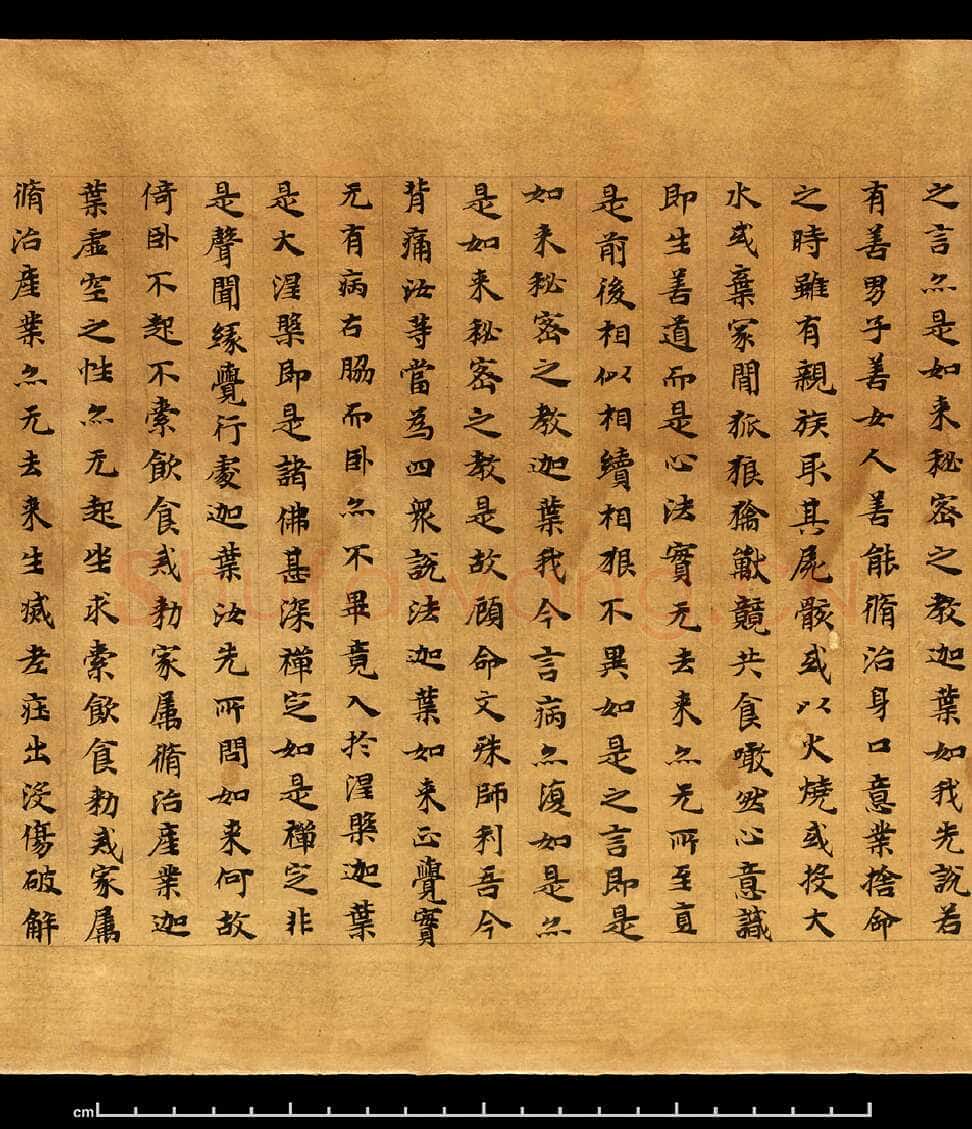 之言亦是如来秘密之教迦葉如我先說若
有善男子善女人善能脩治身口意業捨命
之時雖有親族取其屍骸或以火燒或投大
水或棄冢間狐狼禽獸競共食噉然心意識
即生善道而是心法實无去来亦无所至直
是前後相似相續相狠不異如是之言即是
如来秘密之教迦葉我今言病亦復如是亦
是如来秘密之教是故顧命文殊師利吾今
背痛汝等當為四衆說法迦葉如来正覺實
无有病右脇而卧亦不畢竟入於涅槃迦葉
是大涅槃即是諸佛甚深禪定如是禪定非
是聲聞緣覺行處迦葉汝先所問如来何故
倚卧不起不索飲食戒勑家属脩治産業迦
葉虚空之性亦无起坐求索飲食勑戒家属
脩治産業亦无去来生滅老壯出没傷破解
shufawang.cn
cm